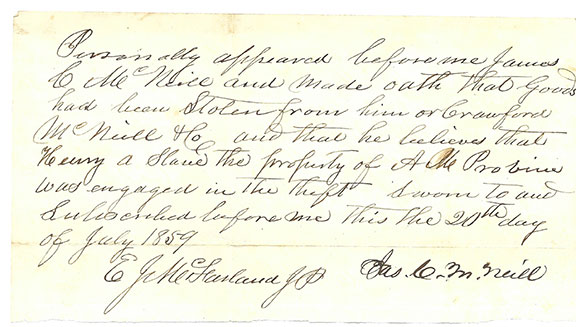 Personally appeared before me James
C McNeill and made oath that Goods
had been Stolen from him or Crawford
McNeill & Co and that he believes that
Henry a Slave the property of A M Provine
was engaged in the theft Sworn to and
Subscribed before me this the 20th day
of July 1859
E J McFarland JP Jas. C. McNeill